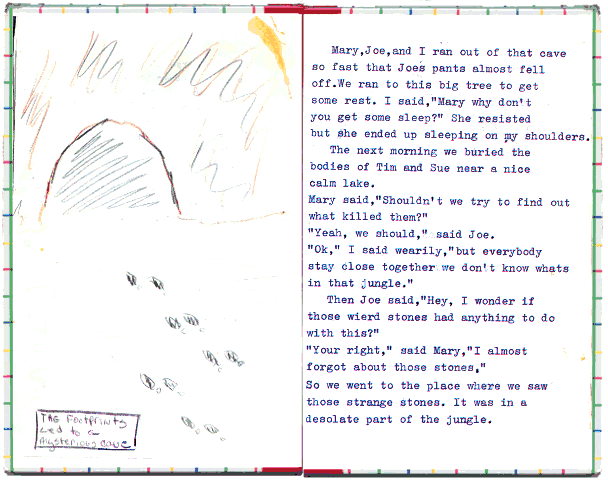 THE Footprints
Led to a
Mysterious cave
Mary,Joe,and I ran out of that cave
so fast that Joes pants almost fell
off.We ran to this big tree to get
some rest. I said,"Mary why don't
you get some sleep?" She resisted
but she ended up sleeping on my shoulders.
The next morning we buried the
bodies of Tim and Sue near a nice
calm lake.
Mary said,"Shouldn't we try to find out
what killed them?"
"Yeah, we should," said Joe.
"Ok," I said wearily,"but everybody
stay close together we don't know whats
in that jungle."
Then Joe said,"Hey, I wonder if
those wierd stones had anything to do
with this?"
"Your right," said Mary,"I almost
forgot about those stones,"
So we went to the place where we saw
those strange stones. It was in a
desolate part of the jungle.